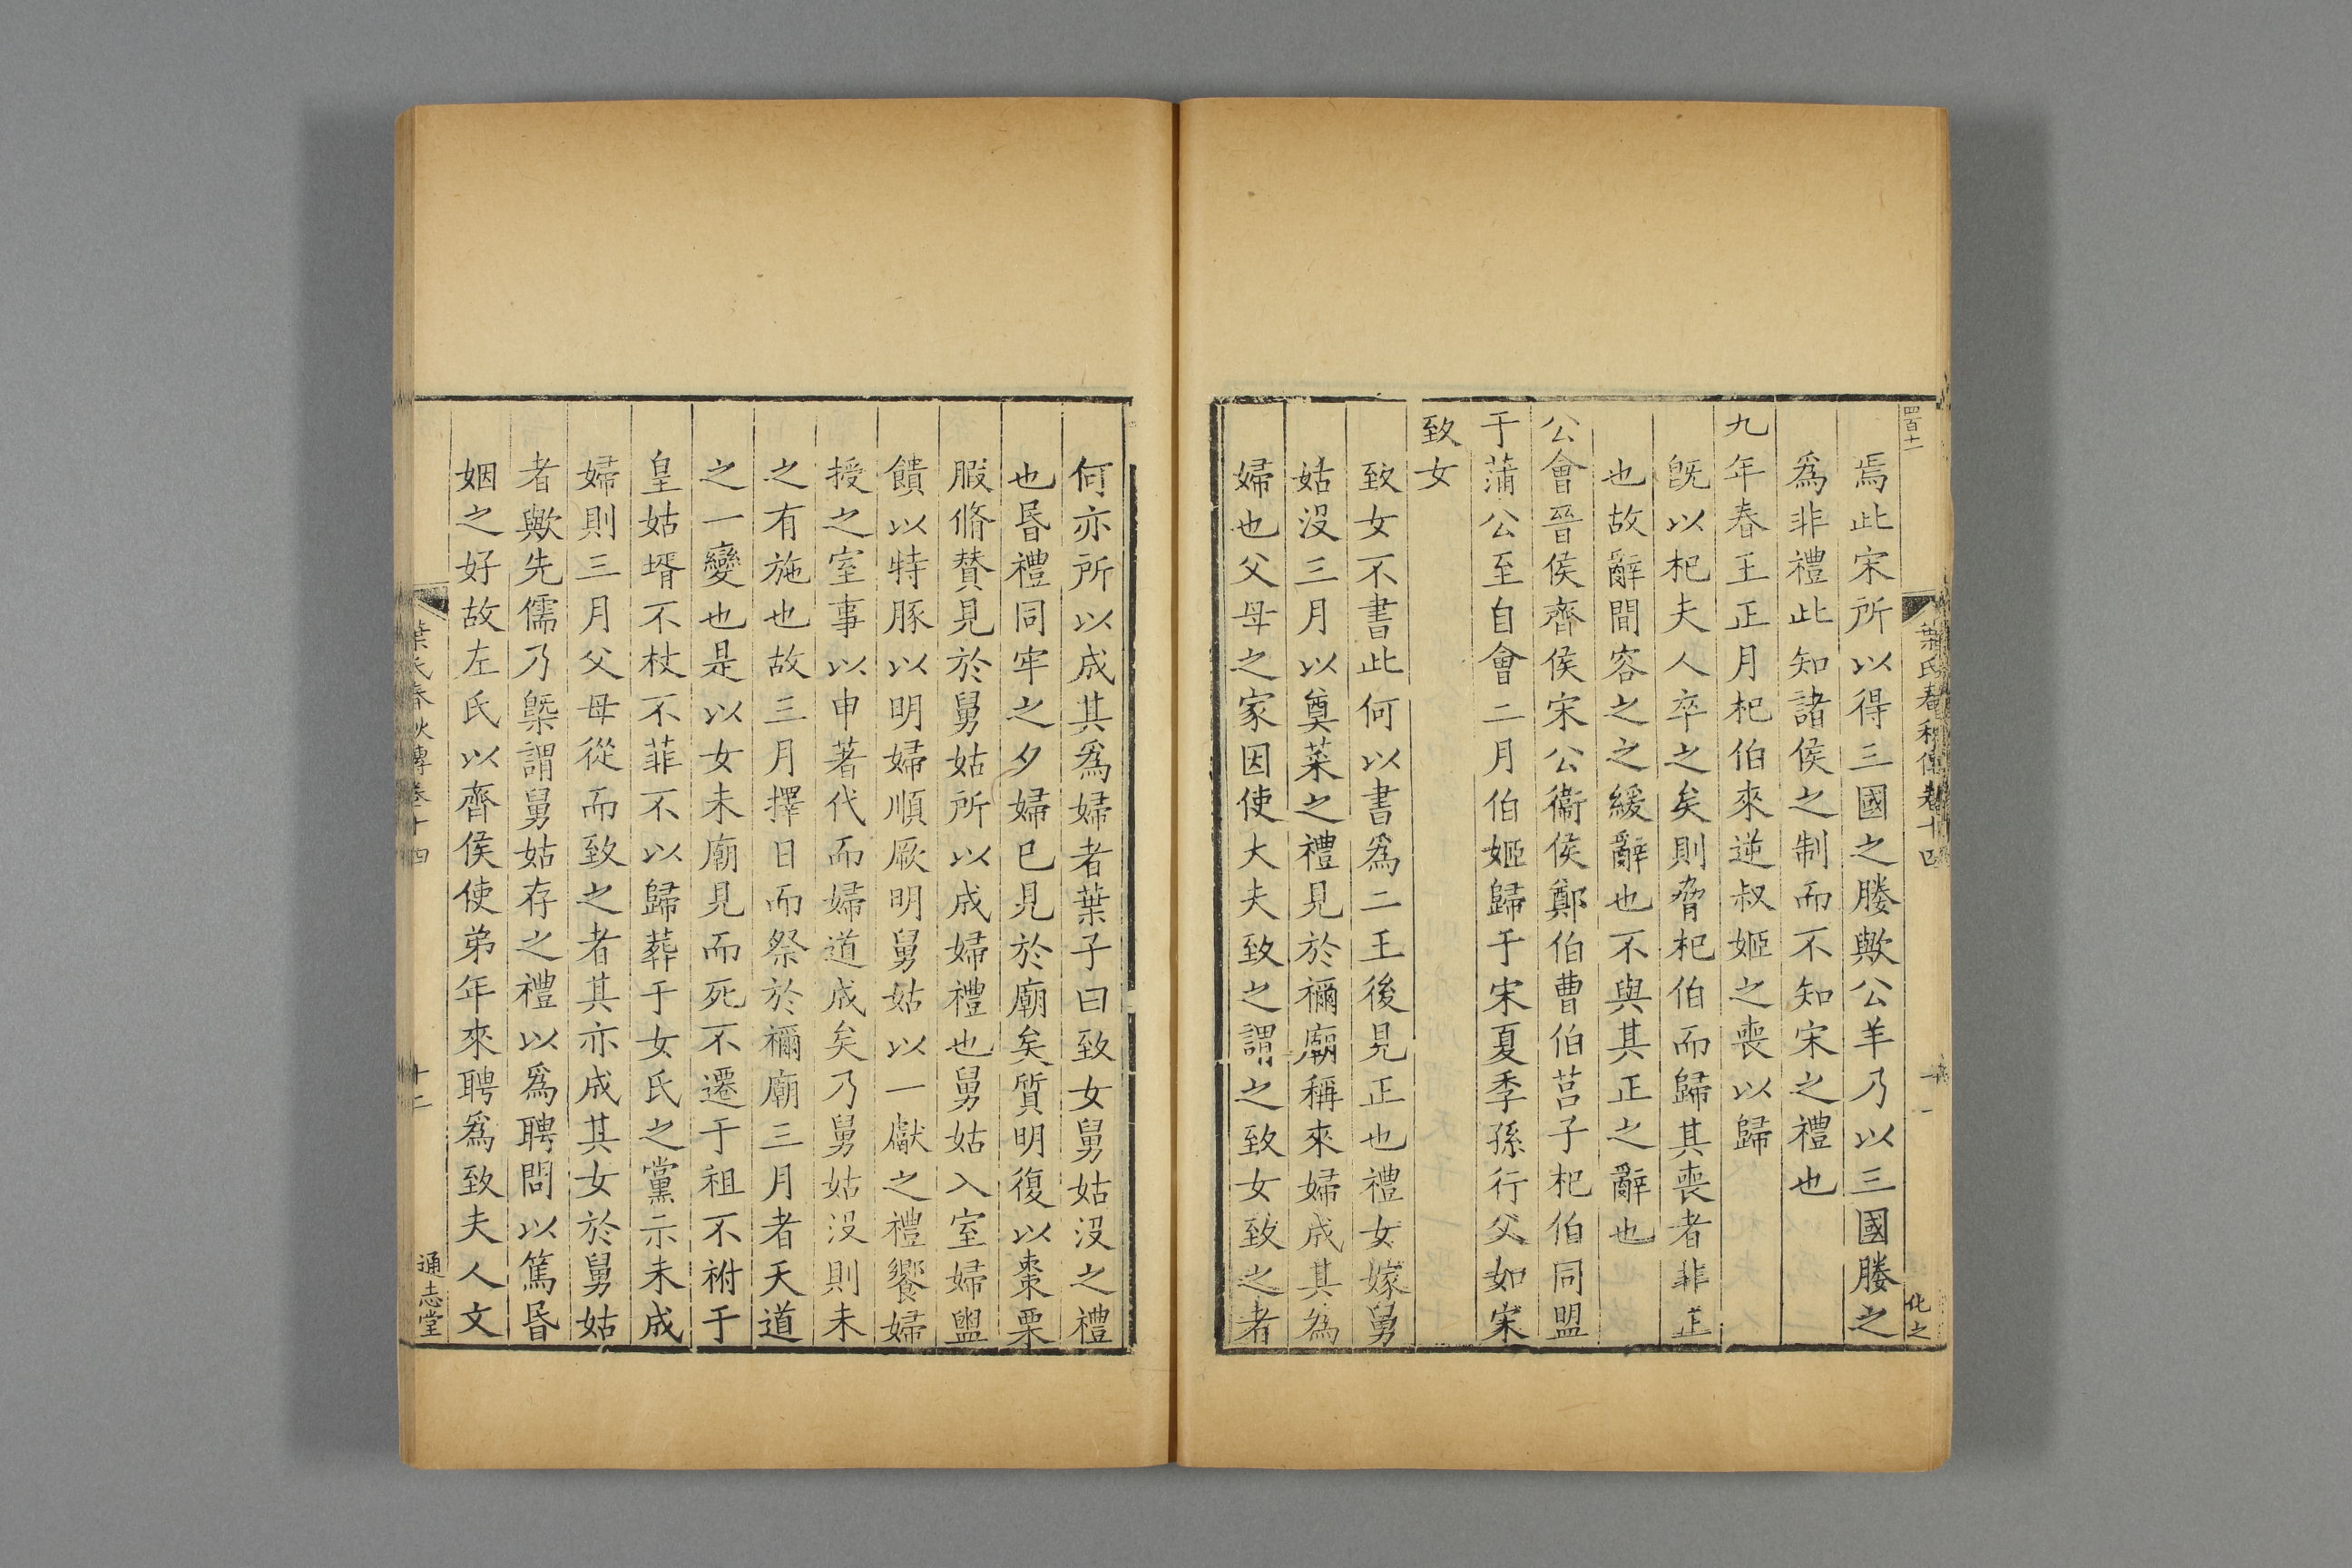 四百十一
葉氏春秋傳卷十四
化之
焉此宋所以得三國之媵歟公羊乃以三國媵之
爲非禮此知諸侯之制而不知宋之禮也
九年春王正月杞伯來逆叔姬之喪以歸
旣以杞夫人卒之矣則脅杞伯而歸其喪者非正
也故辭間容之之緩辭也不與其正之辭也
公會晉侯齊侯宋公衞侯鄭伯曹伯莒子杞伯同盟
于蒲公至自會二月伯姬歸于宋夏季孫行父如宋
致女
致女不書此何以書爲二王後見正也禮女嫁舅
姑沒三月以奠菜之禮見於禰廟稱來婦成其為
婦也父母之家因使大夫致之謂之致女致之者
何亦所以成其爲婦者葉子曰致女舅姑沒之禮
也昬禮同牢之夕婦已見於廟矣質明復以棗栗
腶脩贄見於舅姑所以成婦禮也舅姑入室婦盥
饋以特豚以明婦順厥明舅姑以一獻之禮饗婦
授之室事以申著代而婦道成矣乃舅姑沒則未
之有施也故三月擇日而祭於禰廟三月者天道
之一變也是以女未廟見而死不遷于祖不祔于
皇姑壻不杖不菲不以歸葬于女氏之黨示未成
婦則三月父母從而致之者其亦成其女於舅姑
者歟先儒乃槩謂舅姑存之禮以爲聘問以篤昬
姻之好故左氏以齊侯使弟年來聘爲致夫人文
葉氏春秋傳卷十四
十二
通志堂